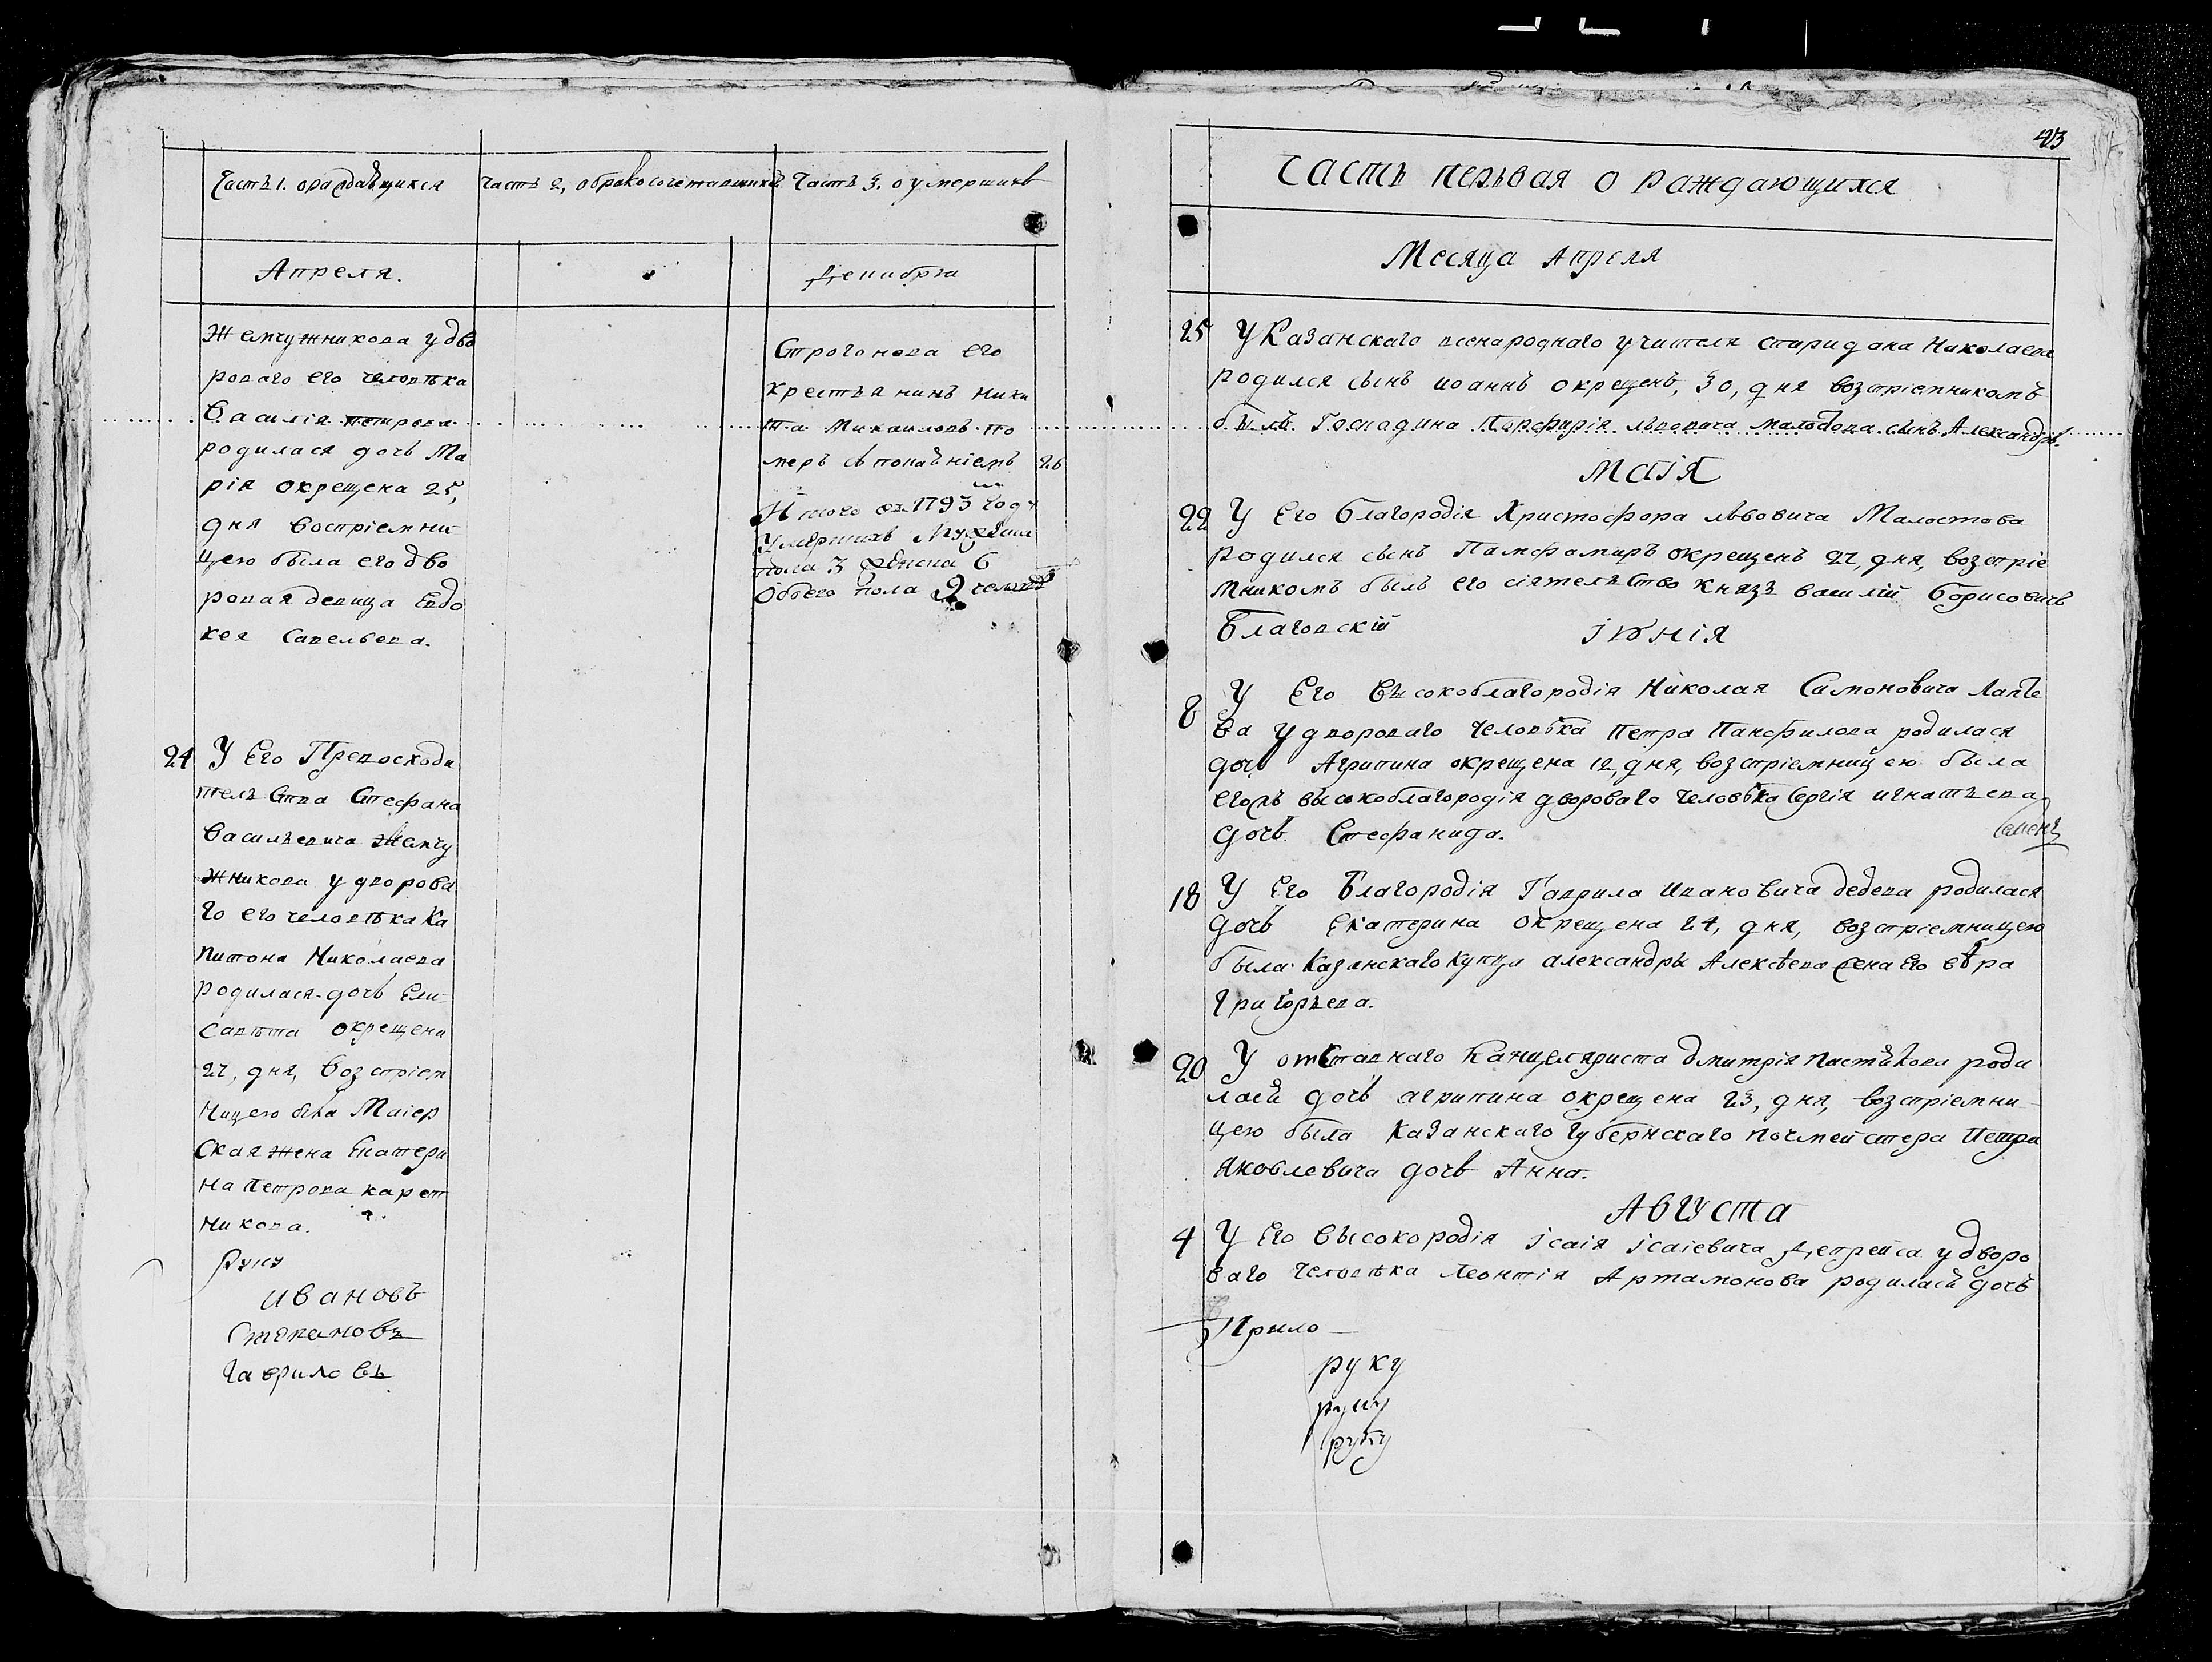 Часть 1. о раждающихся
Часть 2, о бракосочетавшихся
Часть 3. о умершихъ
Апреля.
Декабря
Жемчужникова у дво
роваго его человѣка
Василія Петрова
родилася дочь Ма
рія окрещена 25,
дня востріемни
цею была его дво
ровая девица Евдо
кея Савельева.
24 У Его Превосходи
тельства Стефана
Васильевича Жемчу
жникова у дворова
го его человѣка Ка
питона Николаева
родилася дочь Ели
савѣта окрещена
27, дня, возстріем
ницею была Маіер
ская жена Екатери
на Петрова карет
никова.
руку
Ивановъ
Степановъ
Гавриловъ
Строгонова его
крестьянинъ Ники
та Михаиловъ по
меръ съ покаяніемъ 26
Итого въ 1793 году
умершихъ мужеска
пола 3 женска 6
обоего пола 9 человѣкъ
43
Часть первая о раждающихся
Месяца Апреля
25 У Казанскаго всенароднаго учителя Спиридона Николаева
родился сынъ Иоаннъ окрещенъ, 30, дня возстріемникомъ
былъ Господина Порфирія Львовича Молостова сынъ Александръ.
Маія
22 У Его Благородія Христофора Львовича Малостова
родился сынъ Памфамиръ окрещенъ 27, дня, возстріе
мникомъ былъ его сіятельство Князь Василій Борисовичь
Благовскій
Іюнія
8 У Его Высокоблагородія Николая Симоновича Лапте
ва у двороваго человѣка Петра Панфилова родилася
дочь Агрипина окрещена 12, дня, возстріемницею была
еголъ высокоблагородія двороваго человѣка Сергія Игнатьева
дочь Стефанида.
18 У Его Благородія Гаврила Ивановича Дедева родилася
дочь Екатерина окрещена 24, дня, возстріемницею
была Казанскаго Купца Александры Алексѣева жена Его вѣра
Григорьева.
20 У отставнаго Канцеляриста Дмитрія Пастухова роди
лась дочь Агрипина окрещена 23, дня, возстріемни
цею была Казанскаго Губернскаго почмейстера Петра
Яковлевича дочь Анна.
Августа
4 У Его Высокородія Ісаія Ісаіевича Депрейса у дворо
ваго человѣка Леонтія Артамонова родилась дочь
Прило
руку
руку
руку